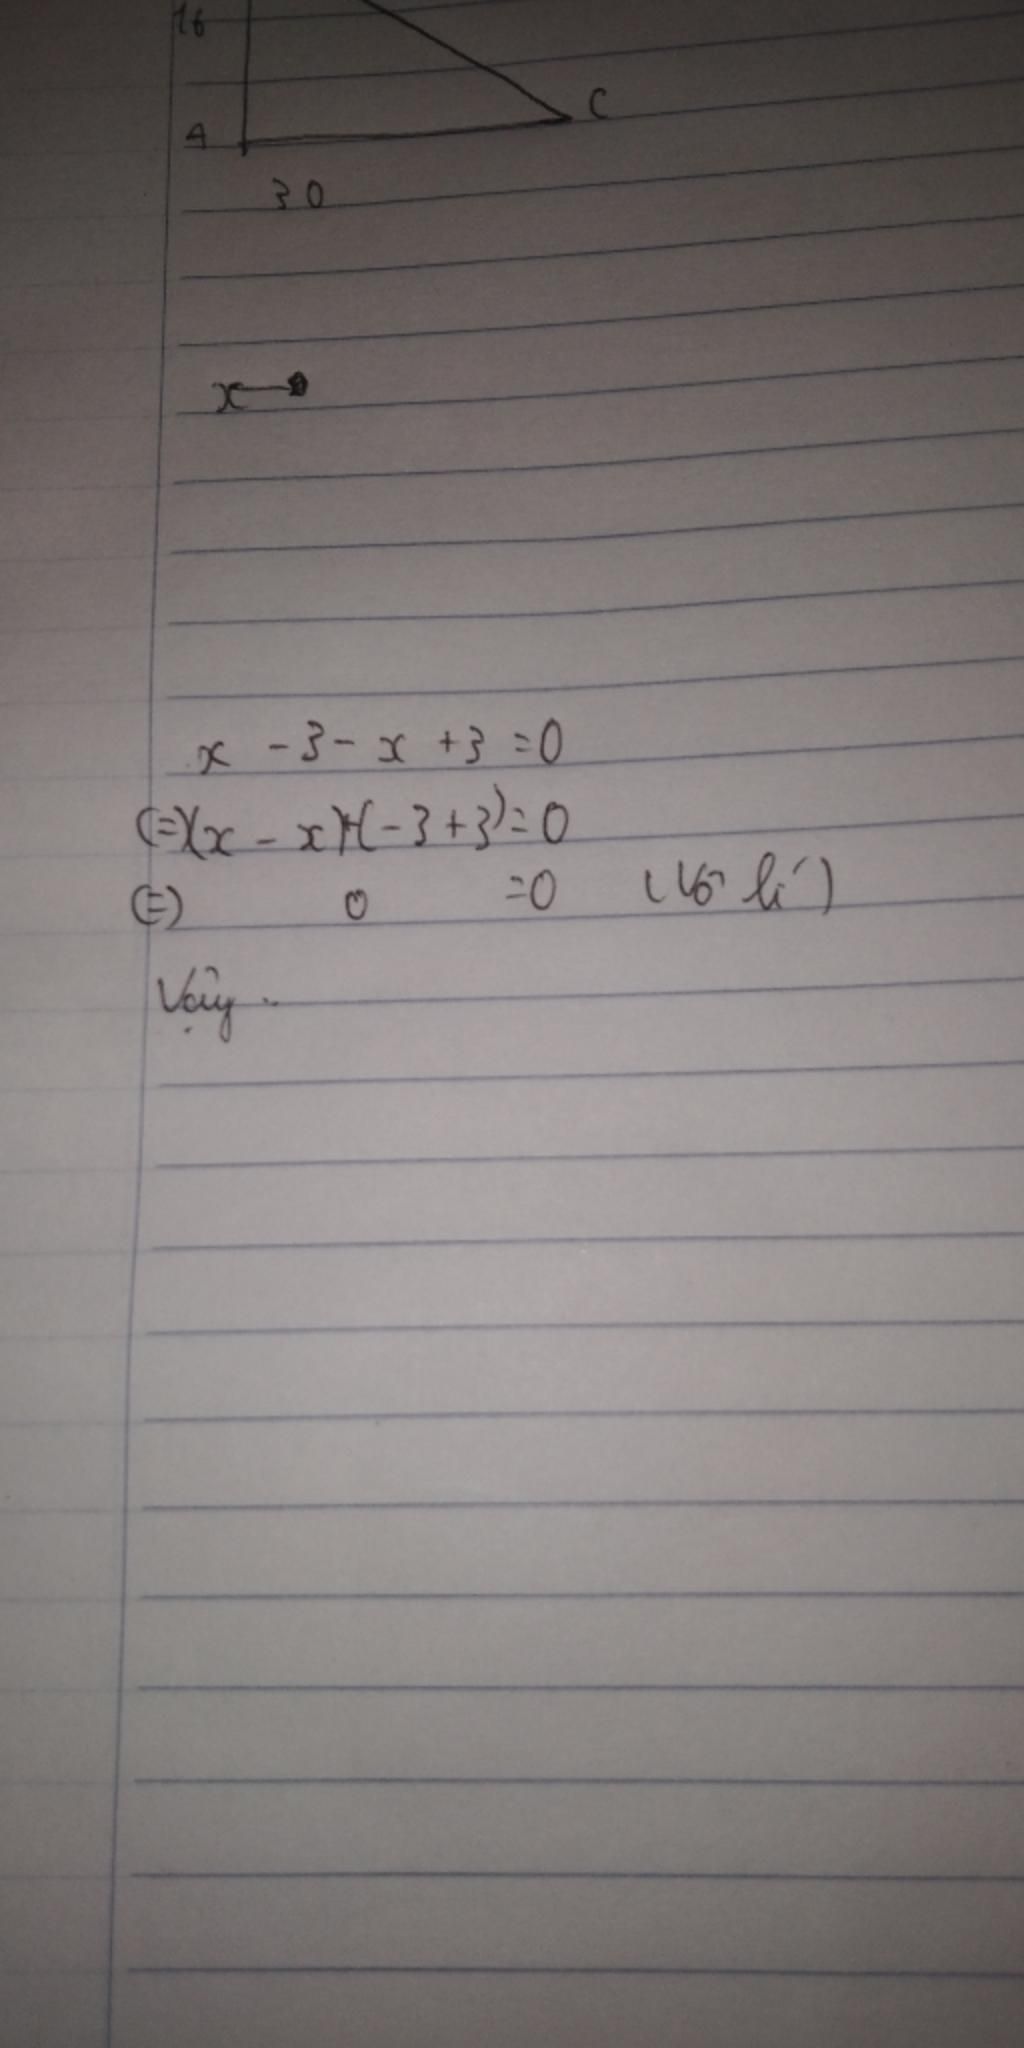 16
C
A
30
x
x - 3 - x + 3 = 0
(=)(x - x)+(-3+3)=0
(=) 0 =0 (Vô lí)
Vậy.